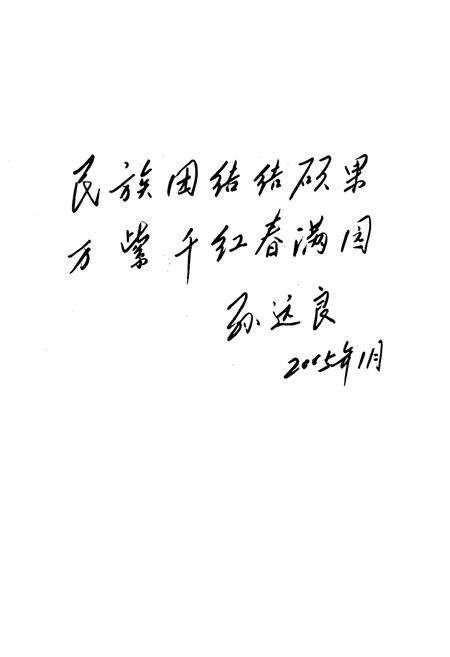 民族团结结硕果
万紫千红春满园
孙远良
2005年1月